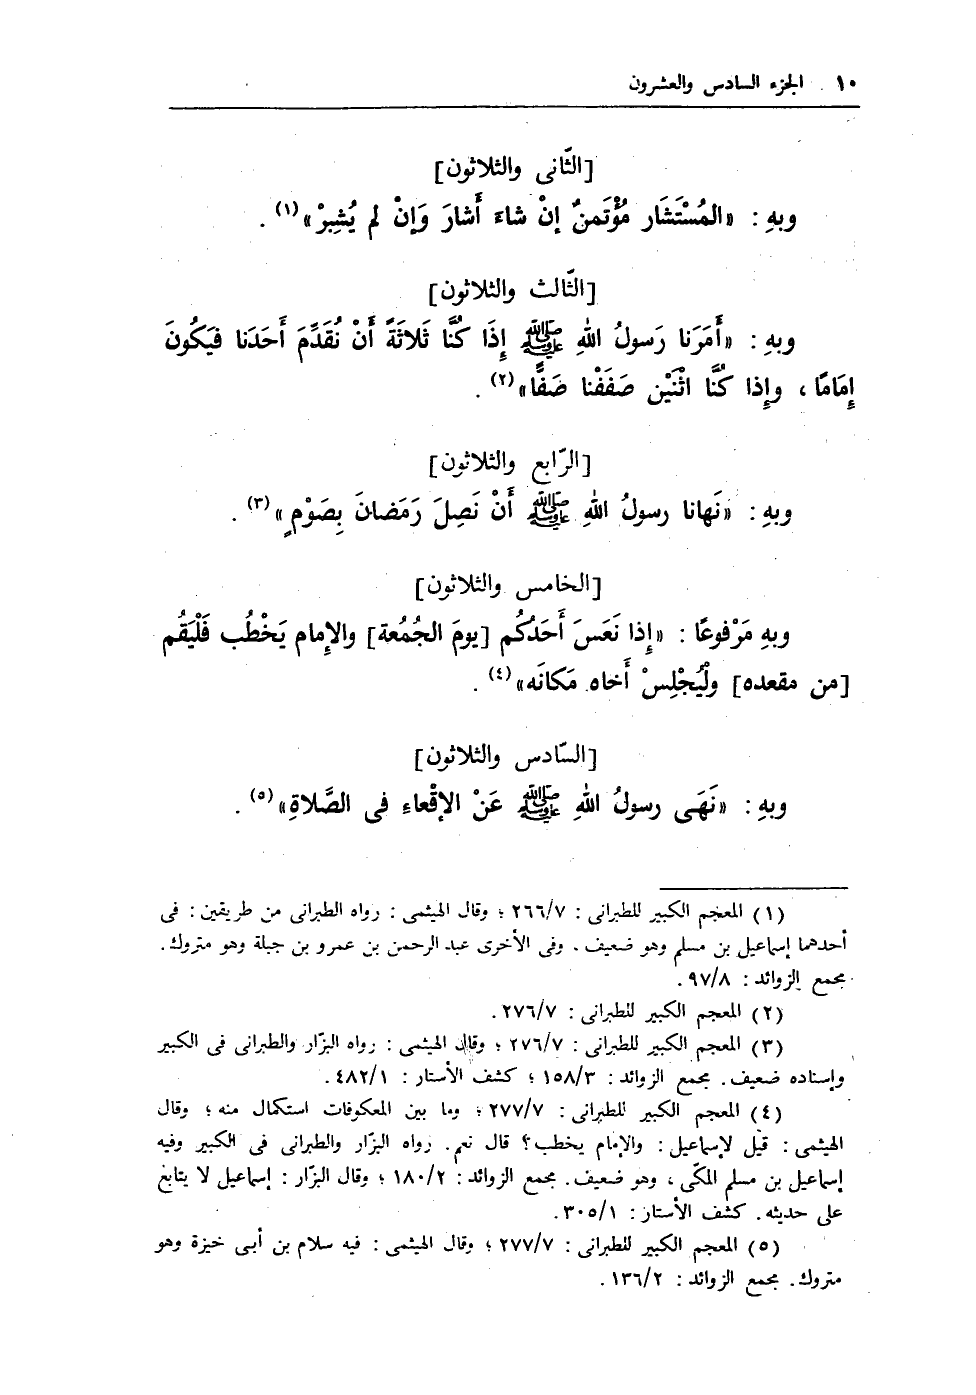 ١٠ . الجزء السادس والعشرون
[الثَّانى والثلاثون]
وبهِ : «المُسْتَشَار مُؤْتَمنٌ إنْ شاءَ أَشارَ وَإنْ لم يُشِيرْ»(١) .
[الثَّالث والثلاثون]
وبهِ : «أَمَرَنا رَسولُ اللهِ ﷺ إِذَا كُنَّا ثَلاثَةً أَنْ نُقَدِّمَ أَحَدَنا فيَكُونَ
إِمَامًا ، وإِذا كُنَّا اثْنَيْن صَفَفْنا صَفًّا»(٢) .
[الرَّابع والثلاثون]
وبهِ : «نَهانا رسولُ اللهِ ﷺ أَنْ نَصِلَ رَمَضانَ بِصَوْمٍ»(٣) .
[الخامس والثلاثون]
وبهِ مَرْفوعًا : «إِذا نَعَسَ أَحَدُكُم [يومَ الجُمُعة] والإِمام يَخْطُب فَلْيَقُم
[من مقعده] ولْيُجْلِسْ أَخاه مَكانَه»(٤) .
[السَّادس والثلاثون]
وبهِ : «نَهَى رسولُ اللهِ ﷺ عَنْ الإقْعاءِ فى الصَّلاةِ»(٥) .
(١) المعجم الكبير للطبرانى : ٢٦٦/٧ ؛ وقال الهيثمى : رواه الطبرانى من طريقين : فى
أحدهما إسماعيل بن مسلم وهو ضعيف . وفى الأخرى عبد الرحمن بن عمرو بن جبلة وهو متروك .
مجمع الزوائد : ٩٧/٨ .
(٢) المعجم الكبير للطبرانى : ٢٧٦/٧ .
(٣) المعجم الكبير للطبرانى : ٢٧٦/٧ ؛ وقال الهيثمى : رواه البزّار والطبرانى فى الكبير
وإسناده ضعيف . مجمع الزوائد : ١٥٨/٣ ؛ كشف الأستار : ٤٨٢/١ .
(٤) المعجم الكبير للطبرانى : ٢٧٧/٧ ؛ وما بين المعكوفات استكمال منه ؛ وقال
الهيثمى : قيل لإسماعيل : والإمام يخطب ؟ قال نعم . رواه البزار والطبرانى فى الكبير وفيه
إسماعيل بن مسلم المكّى ، وهو ضعيف . مجمع الزوائد : ١٨٠/٢ ؛ وقال البزار : إسماعيل لا يتابع
على حديثه . كشف الأستار : ٣٠٥/١ .
(٥) المعجم الكبير للطبرانى : ٢٧٧/٧ ؛ وقال الهيثمى : فيه سلام بن أبى خيزة وهو
متروك . مجمع الزوائد : ١٣٦/٢ .